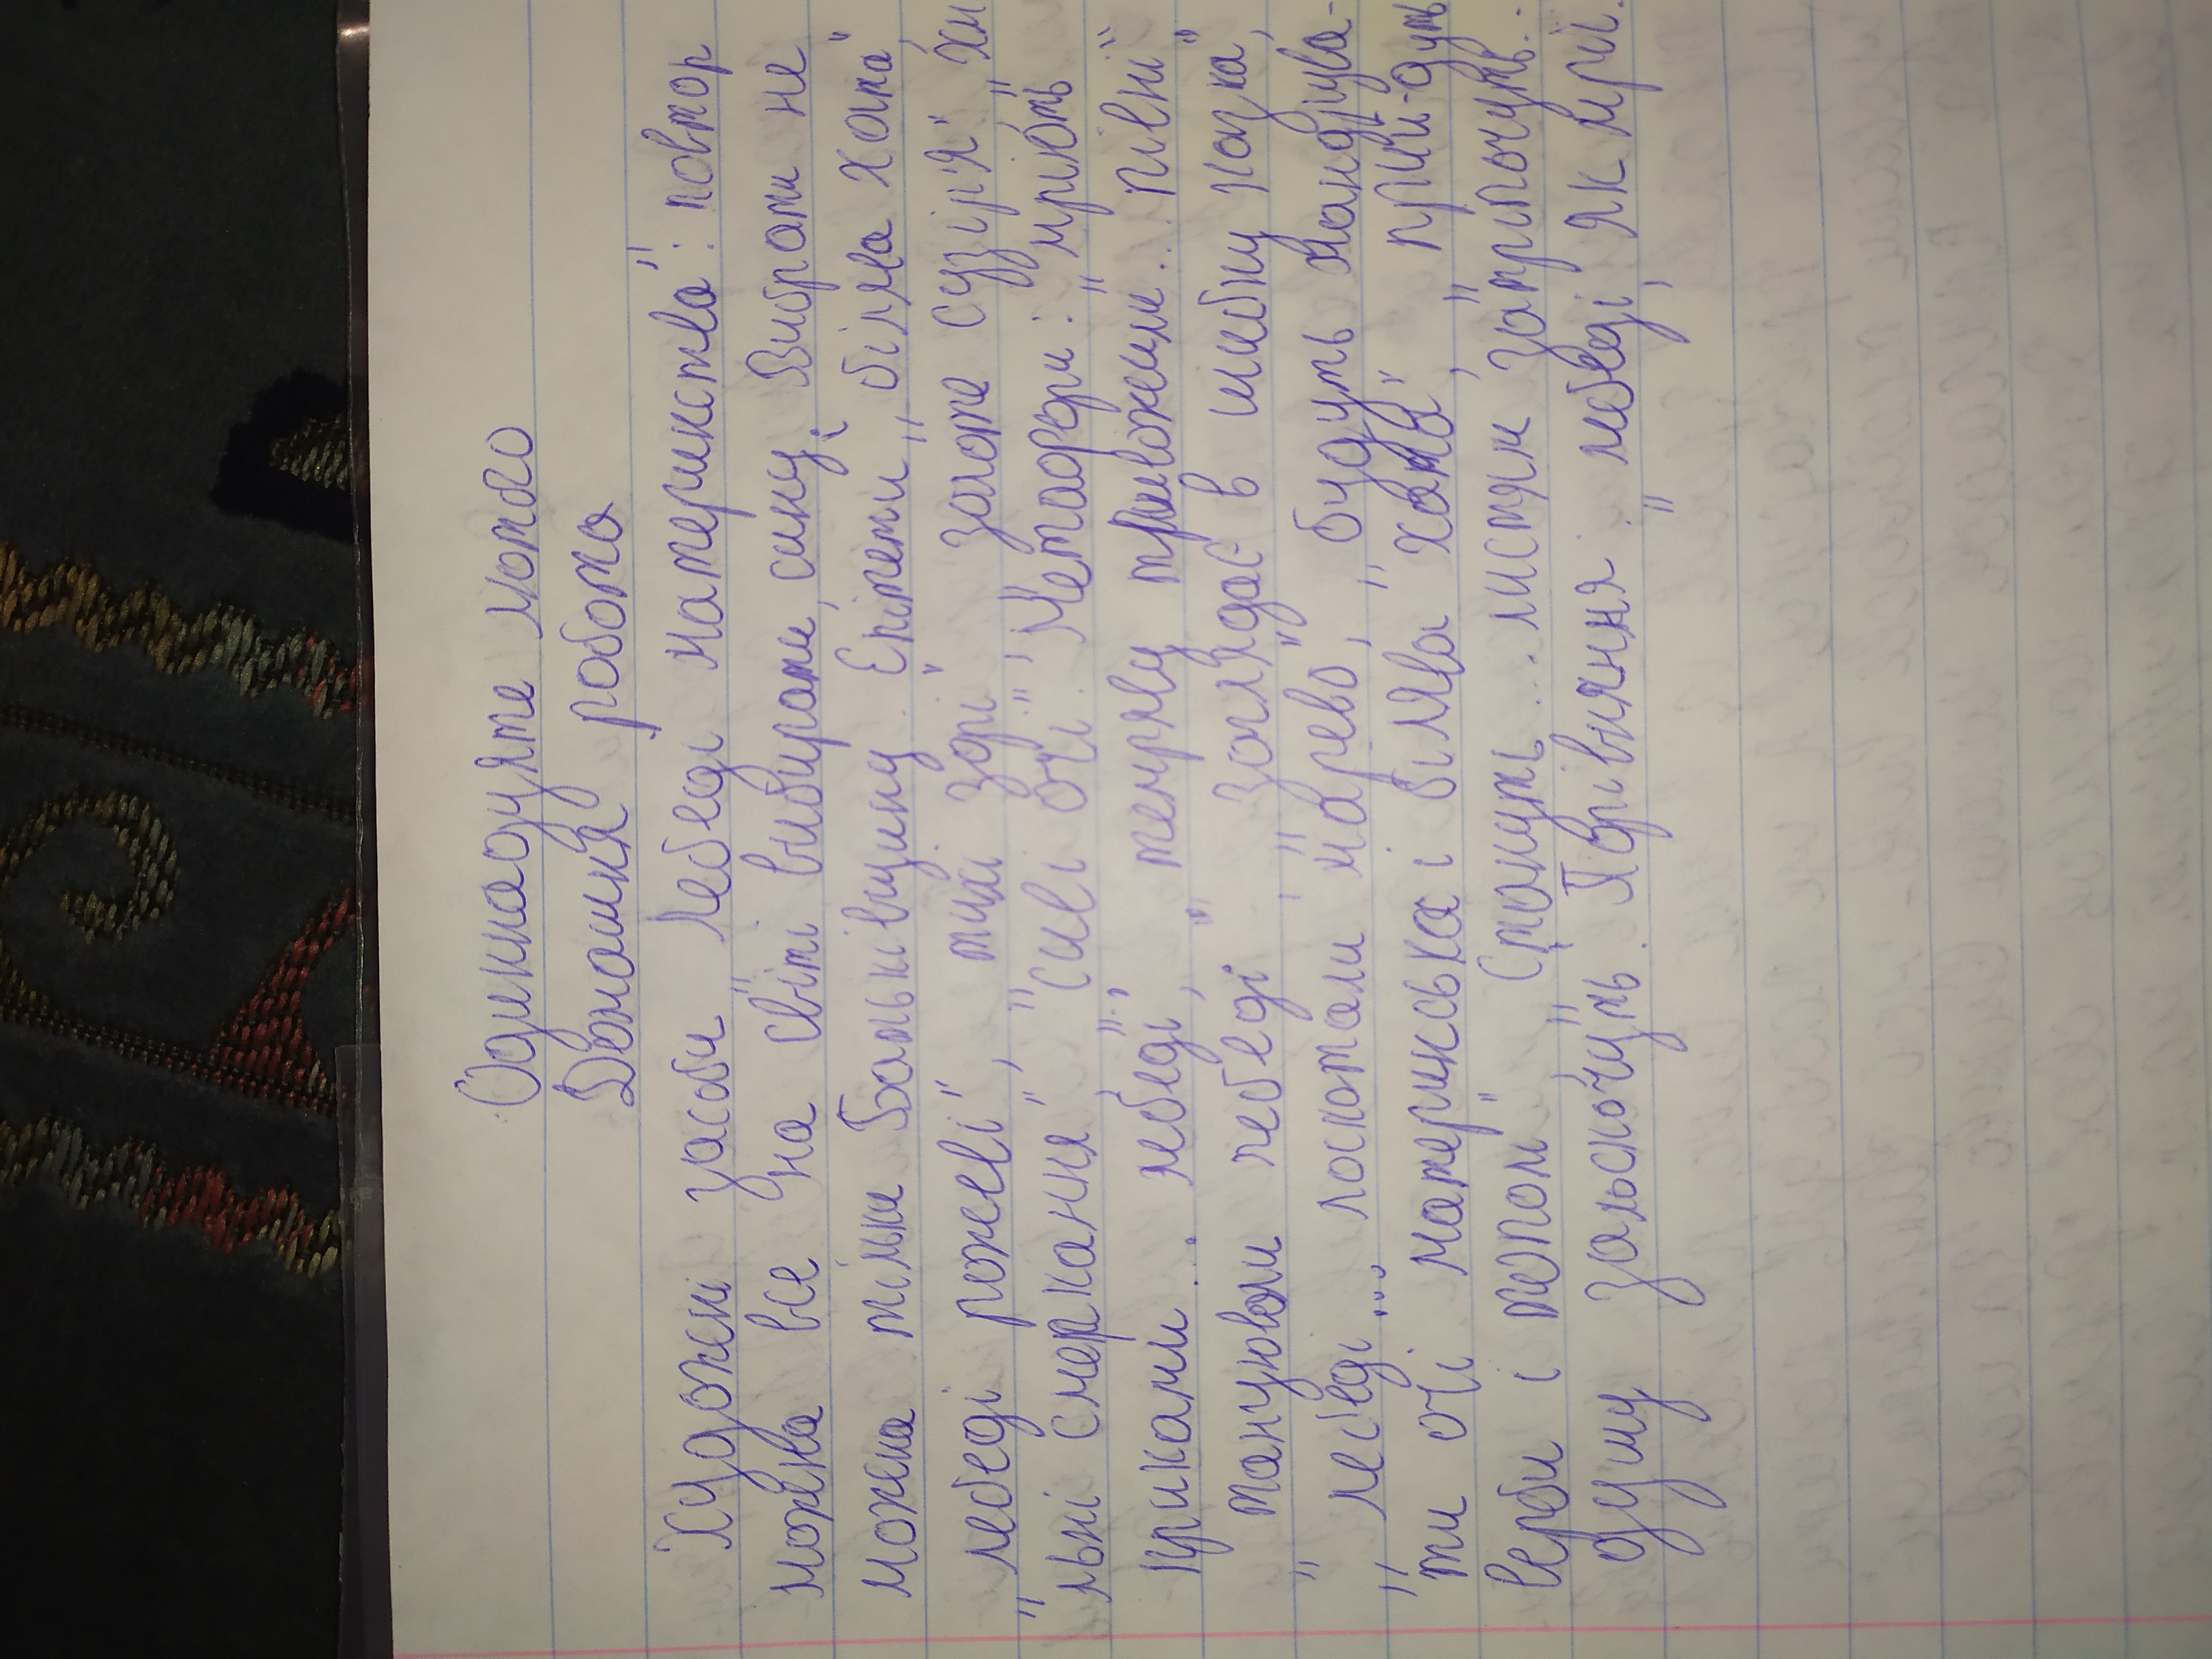 Одинадцяте лютого
Домашня робота
Художні засоби „Лебеді материнства": повтор
можна все на світі вибирати, сину, Вибрати не
можна тільки Батьківщину. Епітети „біля хати",
„лебеді рожеві", „тихі зорі", золоте сузір'я", „хи
мні смеркання", „сиві очі". Метафори: „мріють
крилами... лебеді", „темряву тривожили... півні"
„танцювали лебеді", „заглядає в шибку казка",
„лебеді... лоскотали марево", „будуть мандрува-
ти очі материнські і білява хата", „при-дуть
верби і тополі", „Стануть... листям затріпочуть..
душу залоскочуть. Порівняння: „лебеді, як мрії.